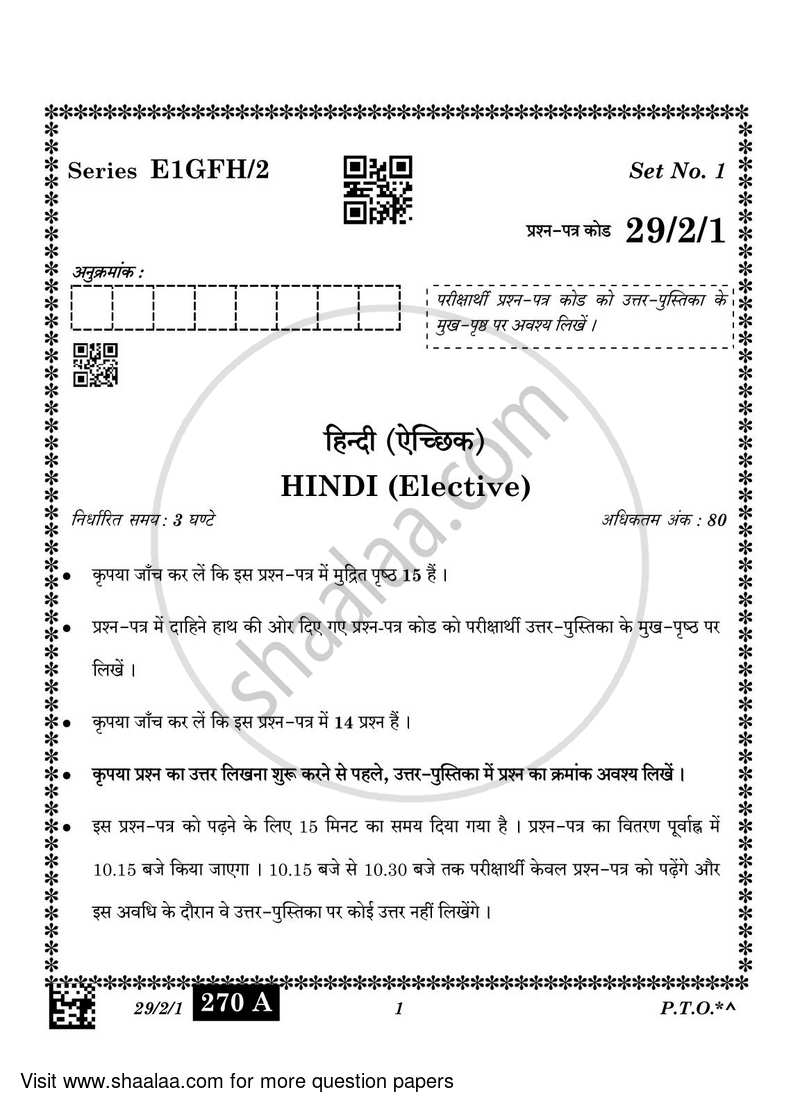 Series E1GFH/2
Set No. 1
प्रश्न-पत्र कोड 29/2/1
अनुक्रमांक :
परीक्षार्थी प्रश्न-पत्र कोड को उत्तर-पुस्तिका के
मुख-पृष्ठ पर अवश्य लिखें ।
हिन्दी (ऐच्छिक)
HINDI (Elective)
निर्धारित समय : 3 घण्टे
अधिकतम अंक : 80
• कृपया जाँच कर लें कि इस प्रश्न-पत्र में मुद्रित पृष्ठ 15 हैं ।
• प्रश्न-पत्र में दाहिने हाथ की ओर दिए गए प्रश्न-पत्र कोड को परीक्षार्थी उत्तर-पुस्तिका के मुख-पृष्ठ पर
लिखें ।
• कृपया जाँच कर लें कि इस प्रश्न-पत्र में 14 प्रश्न हैं ।
• कृपया प्रश्न का उत्तर लिखना शुरू करने से पहले, उत्तर-पुस्तिका में प्रश्न का क्रमांक अवश्य लिखें ।
• इस प्रश्न-पत्र को पढ़ने के लिए 15 मिनट का समय दिया गया है । प्रश्न-पत्र का वितरण पूर्वाह्न में
10.15 बजे किया जाएगा । 10.15 बजे से 10.30 बजे तक परीक्षार्थी केवल प्रश्न-पत्र को पढ़ेंगे और
इस अवधि के दौरान वे उत्तर-पुस्तिका पर कोई उत्तर नहीं लिखेंगे ।
shaalaa.com
29/2/1 270 A 1 P.T.O.*^
Visit www.shaalaa.com for more question papers